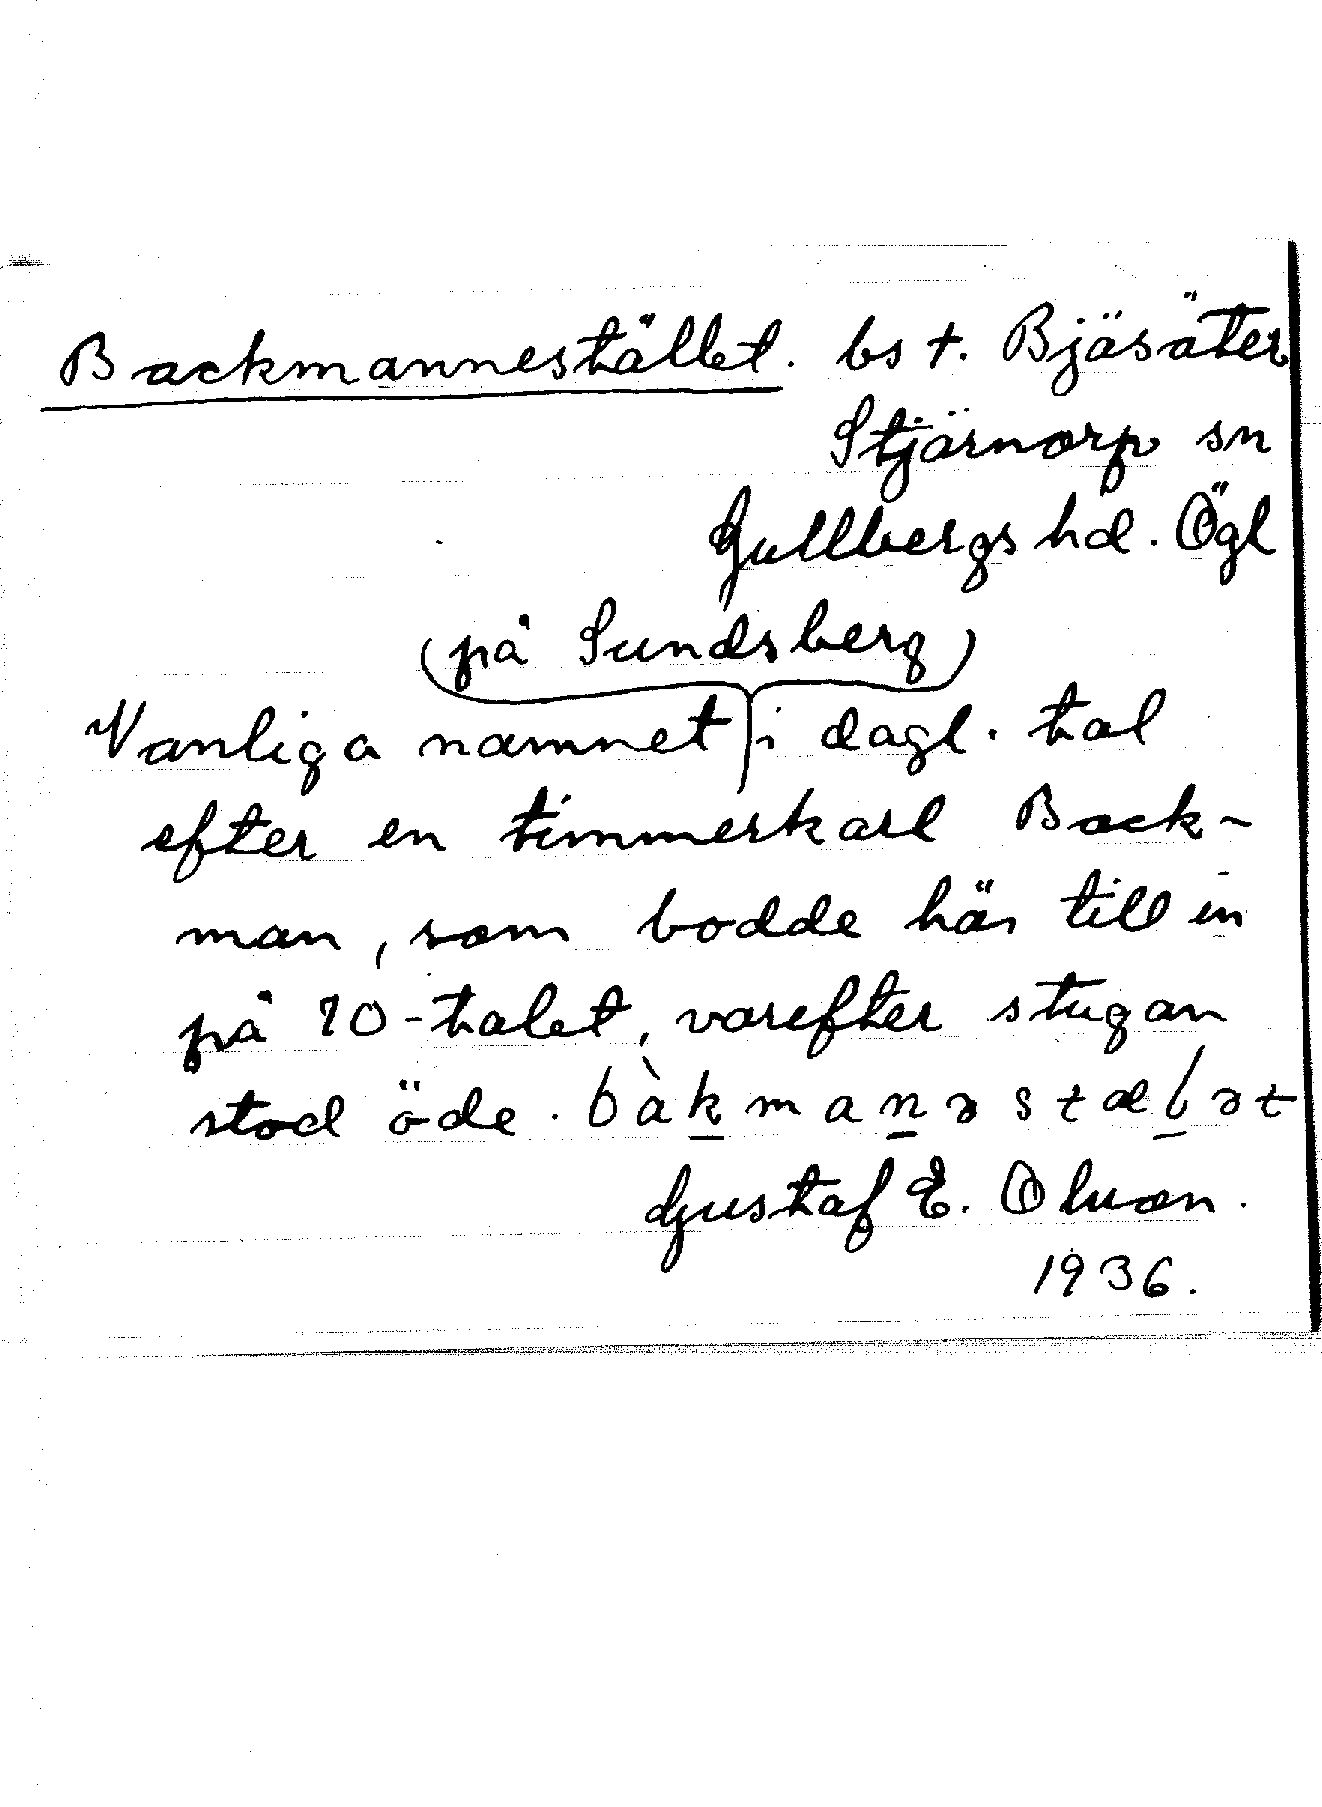 Backmannestället. bs t. Bjäsäter
Stjärnorp sn
Gullbergs hd. Ögl
(på Sundsberg)
Vanliga namnet i dagl. tal
efter en timmerkarl Back-
man, som bodde här till in
på 10-talet, varefter stugan
stod öde. bàkmanəstælət
Gustaf E. Olsson.
1936.